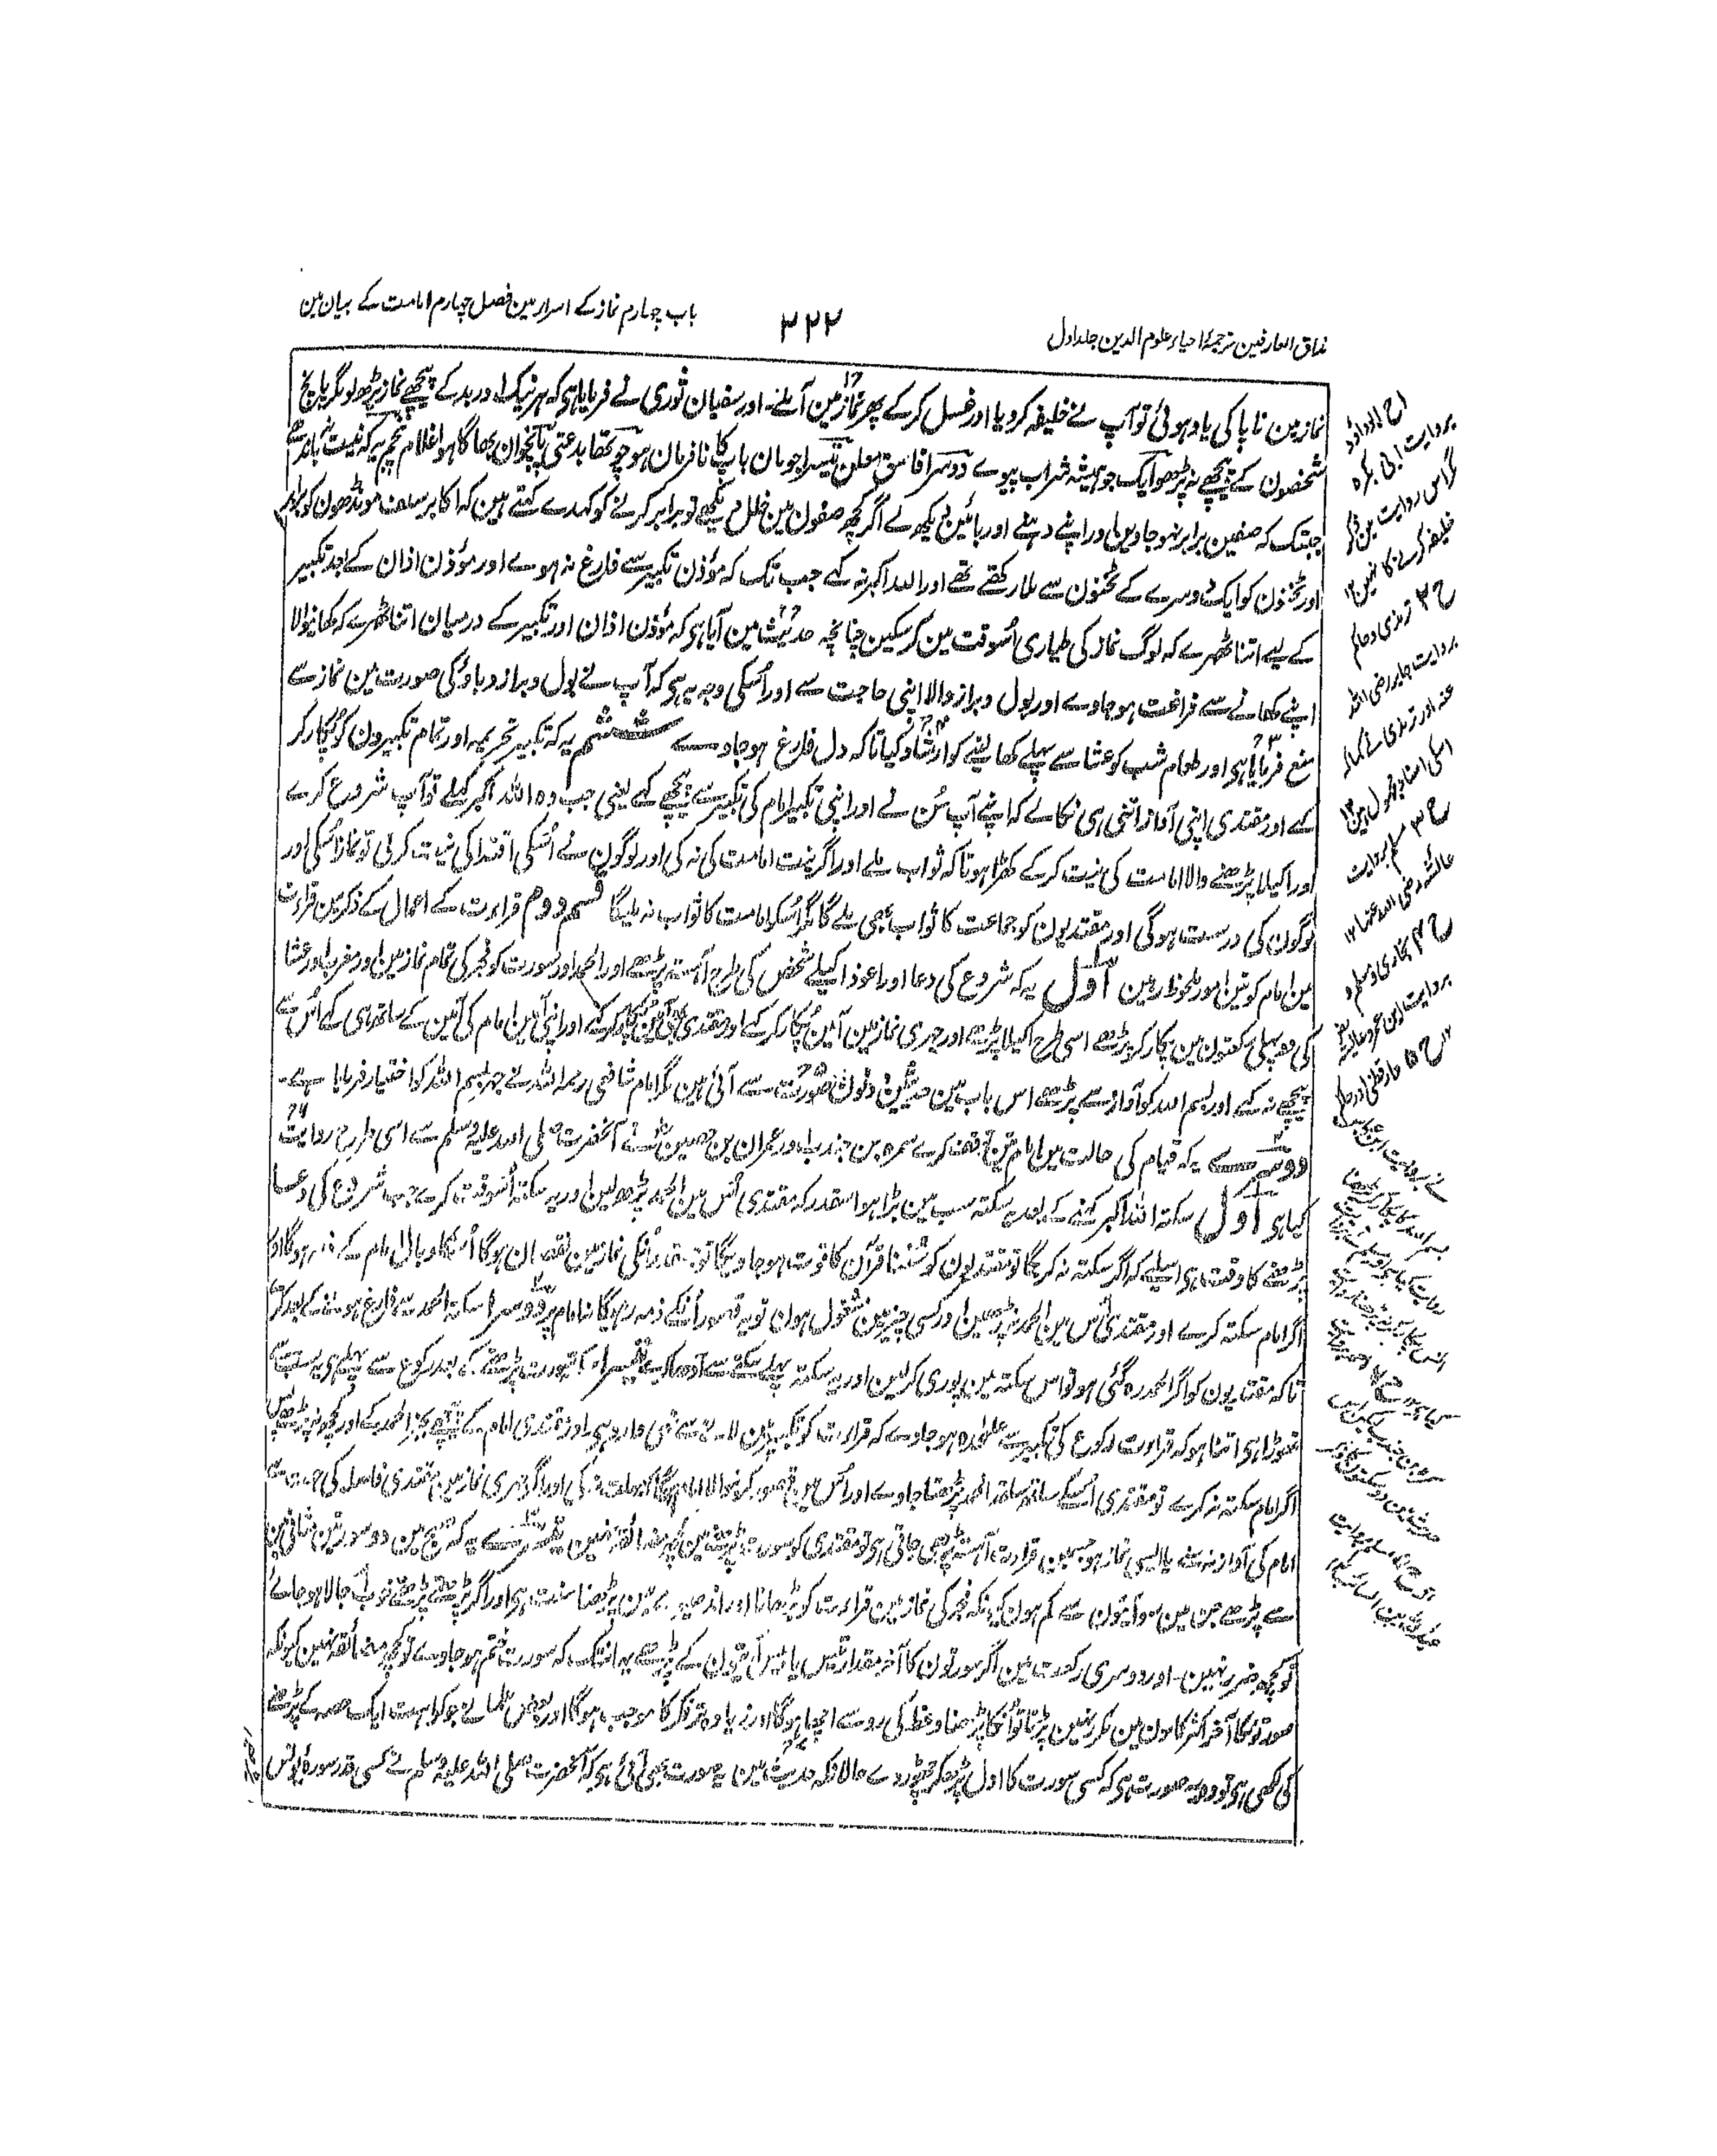 مذاق العارفین ترجمۂ احیاء علوم الدین جلد اول
۳۲۲
باب چہارم نماز کے اسرار مین فصل چہارم امامت کے بیان مین
نماز مین ناپاکی یاد ہوئی تو آپ نے خلیفہ کر دیا اور غسل کر کے پھر نماز مین آملے۔ اور سفیان ثوری نے فرمایا ہی کہ ہر نیک اور بد کے پیچھے نماز پڑھ لو مگر پانچ
شخصون کے پیچھے نہ پڑھو ایک جو ہمیشہ شراب پیوے دوسرا فاسق معلن تیسرا جو مان باپ کا نافرمان ہو چوتھا بدعتی پانچوان بھاگا ہوا غلام پنجم یہ کہ نیت نہ باندھے
جبتک کہ صفین برابر نہو جاوین اور اپنے دہنے اور بائین دیکھ لے اگر کچھ صفون مین خلل دیکھے تو برابر کرنے کو کہدے کہتے ہین کہ اکابر سلف مونڈھون کو برابر
اور ٹخنون کو ایک دوسرے کے ٹخنون سے ملا رکھتے تھے اور اللہ اکبر نہ کہے جب تک کہ مؤذن تکبیر سے فارغ نہ ہووے اور مؤذن اذان کے بعد تکبیر
کے لیے اتنا ٹھہرے کہ لوگ نماز کی طیاری اُسوقت مین کر سکین چنانچہ حدیث مین آیا ہی کہ مؤذن اذان اور تکبیر کے درمیان اتنا ٹھہرے کہ کھانیوالا
اپنے کھانے سے فراغت ہو جاوے اور بول و براز والا اپنی حاجت سے اور اُسکی وجہ یہ ہی کہ آپ نے بول و براز و باؤ کی صورت مین نماز سے
منع فرمایا ہی اور طعام شب کو عشا سے پہلے کھا لینے کو ارشاد کیا تاکہ دل فارغ ہو جاوے ششم یہ کہ تکبیر تحریمہ اور تمام تکبیرون کو پکار کر
کہے اور مقتدی اپنی آواز اتنی ہی نکالے کہ اپنے آپ سُن لے اور اپنی تکبیر امام کی تکبیر سے پیچھے کہے یعنی جب وہ اللہ اکبر کہلے تو آپ شروع کرے
اور اکیلا پڑھنے والا امامت کی نیت کر کے کھڑا ہو تاکہ ثواب ملے اور اگر نیت امامت کی نہ کی اور لوگون نے اُسکی اقتدا کی نیت کر لی تو نماز اُسکی اور
لوگون کی درست ہوگی اور مقتدیون کو جماعت کا ثواب بھی ملے گا مگر اُسکو امامت کا ثواب نہ ملیگا قسم دوم قراءت کے اعمال کے ذکر مین قراءت
مین امام کو تین امور ملحوظ رہین اول یہ کہ شروع کی دعا اور اعوذ اکیلے شخص کی طرح آہستہ پڑھے اور الحمد اور سورت کو فجر کی تمام نماز مین اور مغرب اور عشا
کی دو پہلی رکعتون مین پکار کر پڑھے اسی طرح اکیلا پڑھے اور جہری نماز مین آمین پکار کر کہے اور مقتدی بھی آمین پکار کر کہے اور اپنی آمین امام کی آمین کے ساتھ ہی کہے اُس سے
پیچھے نہ کہے اور بسم اللہ کو آواز سے پڑھے اس باب مین حدیثین دونون طور سے آئی ہین مگر امام شافعی رحمہ اللہ نے جہر بسم اللہ کو اختیار فرمایا ہے۔
دوسرے یہ کہ قیام کی حالت مین امام تین توقف کرے سمرہ بن جندب اور عمران بن حصین نے آنحضرت صلی اللہ علیہ وسلم سے اسی طرح روایت
کیا ہی اول سکتہ اللہ اکبر کہنے کے بعد یہ سکتہ سب مین بڑا ہو اسقدر کہ مقتدی اُس مین الحمد پڑھ لین اور یہ سکتہ اُسوقت کرے جب شروع کی دعا
پڑھنے کا وقت ہی اسلیے کہ اگر سکتہ نہ کریگا تو مقتدیون کو سُننا قرآن کا فوت ہو جاویگا تو جتنا اُنکی نماز مین نقصان ہوگا اُسکا وبال امام کے ذمہ ہوگا اور
اگر امام سکتہ کرے اور مقتدی اُس مین الحمد نہ پڑھین اور کسی چیز مین مشغول ہون تو یہ قصور اُنکے ذمہ رہیگا نہ امام پر دوسرا سکتہ الحمد سے فارغ ہونے کے بعد کرے
تاکہ مقتدیون کو اگر الحمد رہ گئی ہو تو اس سکتہ مین پوری کر لین اور یہ سکتہ پہلے سکتہ سے آدھا کرے تیسرا سکتہ سورت پڑھنے کے بعد رکوع سے پہلے ہی یہ سب سے
تھوڑا ہی اتنا ہو کہ قراءت رکوع کی تکبیر سے علیحدہ ہو جاوے کہ قراءت کو تکبیر مین ملانے سے نہی وارد ہی اور مقتدی امام کے پیچھے بجز الحمد کے اور کچھ نہ پڑھے پس
اگر امام سکتہ نہ کرے تو مقتدی اُسکے ساتھ ساتھ الحمد پڑھتا جاوے اور اُس مین قصور کرنیوالا امام ہوگا کہ مہلت نہ کی اور اگر جہری نماز مین مقتدی فاصلہ کی جہت سے
امام کی آواز نہ سُنے یا ایسی نماز ہو جسمین قراءت آہستہ پڑھی جاتی ہی تو مقتدی کو سورت پڑھنے مین کچھ مضائقہ نہین تیسرے یہ کہ صبح مین دو سورتین مثانی مین
سے پڑھے جن مین سو آیتون سے کم ہون کیونکہ فجر کی نماز مین قراءت کو بڑھانا اور اندھیرے مین پڑھنا سنت ہی اور اگر پڑھتے پڑھتے خوب اُجالا ہو جائے
تو کچھ ضرر نہین۔ اور دوسری رکعت مین اگر سورتون کا آخر مقدار تیس یا بیس آیتون کے پڑھے یہ انتک کہ سورت ختم ہو جاوے تو کچھ مضائقہ نہین کیونکہ
سورتونکا آخر اکثر کانون مین مکرر نہین پڑتا تو اُنکا پڑھنا وعظ کی رو سے اچھا ہوگا اور زیادہ تر فکر کا موجب ہوگا اور بعض علما نے جو کراہت ایک حصہ کے پڑھنے
کی لکھی ہی تو وہ یہ صورت ہی کہ کسی سورت کا اول پڑھکر چھوڑ دے حالانکہ حدیث مین یہ صورت بھی آئی ہی کہ آنحضرت صلی اللہ علیہ وسلم نے کسی قدر سورۂ یونس
ح ابوداؤد
بروایت ابی بکرہ
مگر اس روایت مین ذکر
خلیفہ کرنے کا نہین ۱۲
ح ۲ ترمذی و حاکم
بروایت جابر رضی اللہ
عنہ اور ترمذی نے کہا کہ
اسکی اسناد مجہول ہین ۱۲
ح ۳ مسلم بروایت
عائشہ رضی اللہ عنہا ۱۲
ح ۴ بخاری و مسلم
بروایت ابن عمر و عائشہ
ح ۵ دارقطنی اور حاکم
نے بروایت ابن عباس